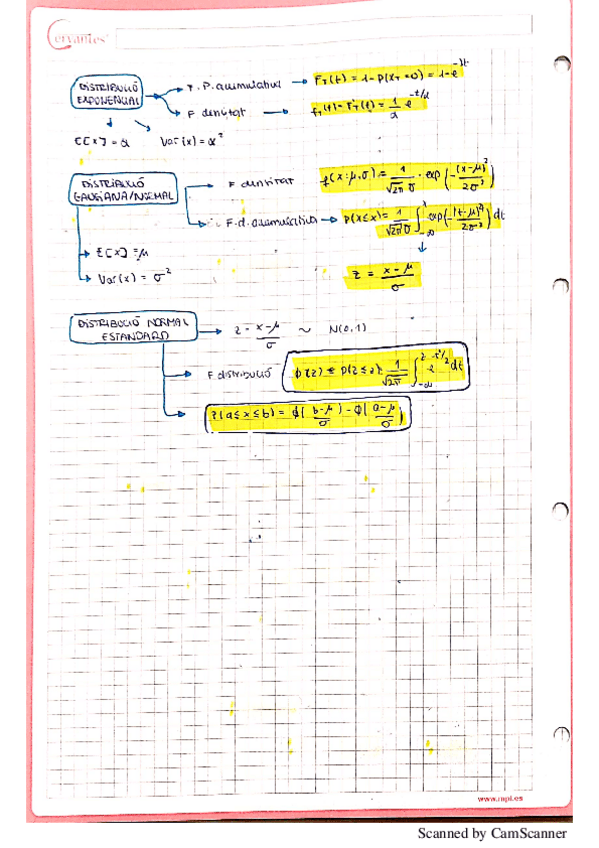 Cervantes
DISTRIBUCIÓ EXPONENCIAL
F.P. acumulativa → F_T(t) = 1 - P(X_T = 0) = 1 - e^{-λt}
F densitat → f_T(t) = F'_T(t) = 1/α e^{-t/α}
E[X] = α Var(x) = α²
DISTRIBUCIÓ GAUSIANA/NORMAL
F densitat → f(x:μ,σ) = 1/(√2π σ) · exp(-(x-μ)²/2σ²)
F.d. acumulativa → P(X≤x) = 1/(√2π σ) ∫_{-∞}^{x} exp(-(t-μ)²/2σ²) dt
E[X] = μ
Var(x) = σ²
z = x-μ/σ
DISTRIBUCIÓ NORMAL ESTANDARD
z = x-μ/σ ~ N(0,1)
F. distribució φ(z) = P(Z≤z) = 1/√2π ∫_{-∞}^{z} e^{-t²/2} dt
P(a≤x≤b) = φ(b-μ/σ) - φ(a-μ/σ)
www.mpl.es
Scanned by CamScanner